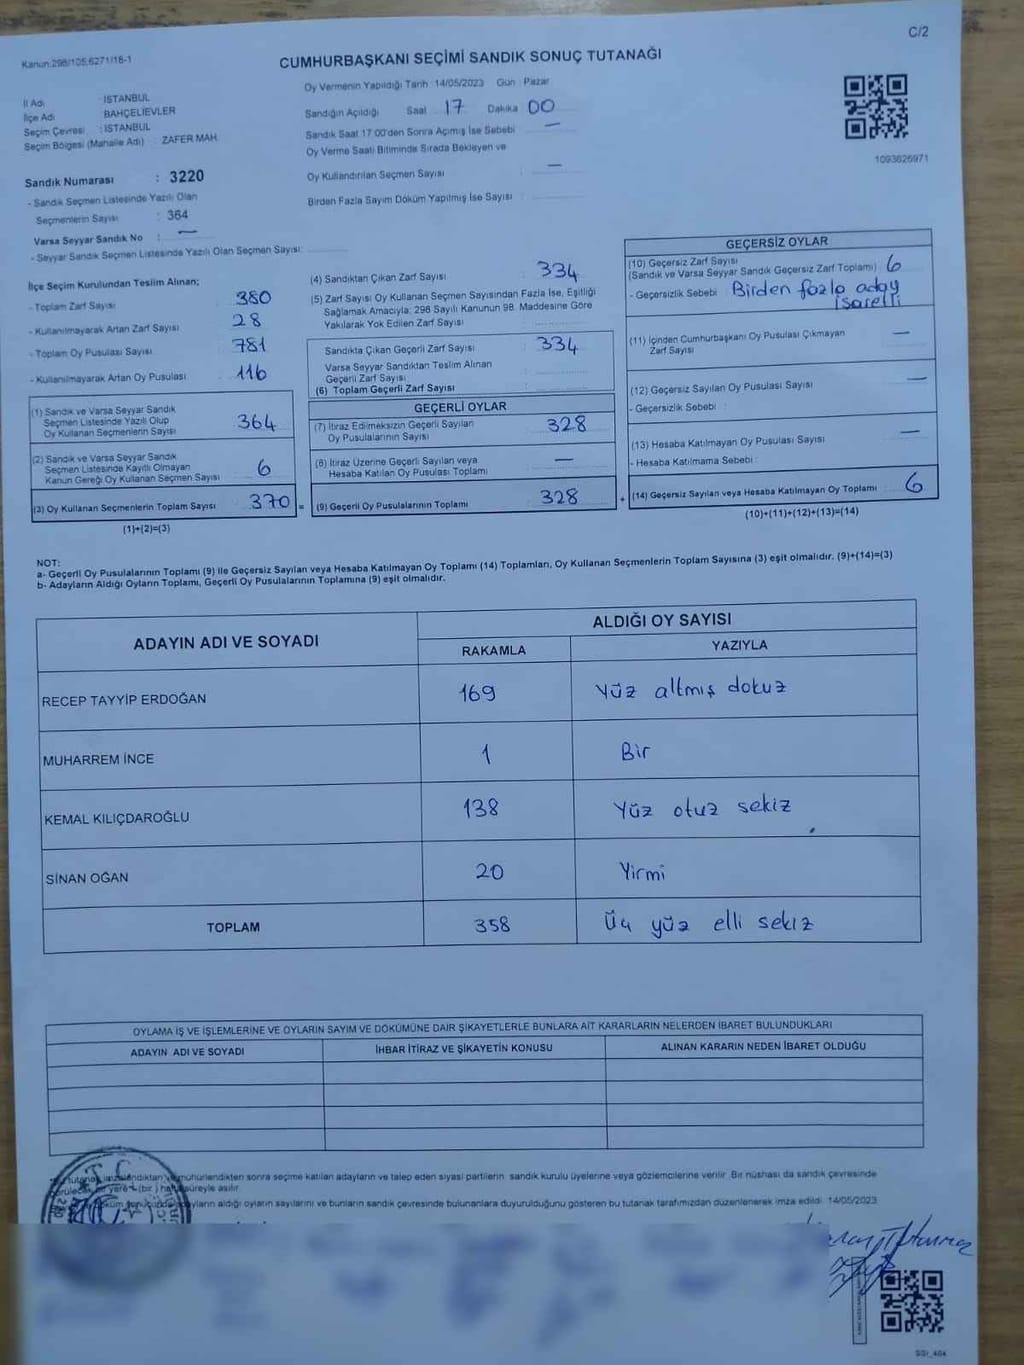 C/2
Kanun:298/105,6271/18-1
CUMHURBAŞKANI SEÇİMİ SANDIK SONUÇ TUTANAĞI
Oy Vermenin Yapıldığı Tarih 14/05/2023 Gün Pazar
İl Adı : İSTANBUL
İlçe Adı BAHÇELİEVLER
Seçim Çevresi : İSTANBUL
Seçim Bölgesi (Mahalle Adı) : ZAFER MAH.
Sandığın Açıldığı Saat 17 Dakika 00
Sandık Saat 17.00'den Sonra Açımış İse Sebebi : —
Oy Verme Saati Bitiminde Sırada Bekleyen ve
Oy Kullandırılan Seçmen Sayısı : —
Birden Fazla Sayım Döküm Yapılmış İse Sayısı :
1093626971
Sandık Numarası : 3220
- Sandık Seçmen Listesinde Yazılı Olan
Seçmenlerin Sayısı : 364
Varsa Seyyar Sandık No : —
- Seyyar Sandık Seçmen Listesinde Yazılı Olan Seçmen Sayısı:
İlçe Seçim Kurulundan Teslim Alınan;
- Toplam Zarf Sayısı : 380
- Kullanılmayarak Artan Zarf Sayısı : 28
- Toplam Oy Pusulası Sayısı : 781
- Kullanılmayarak Artan Oy Pusulası : 116
(1) Sandık ve Varsa Seyyar Sandık
Seçmen Listesinde Yazılı Olup
Oy Kullanan Seçmenlerin Sayısı : 364
(2) Sandık ve Varsa Seyyar Sandık
Seçmen Listesinde Kayıtlı Olmayan
Kanun Gereği Oy Kullanan Seçmen Sayısı : 6
(3) Oy Kullanan Seçmenlerin Toplam Sayısı : 370 =
(1)+(2)=(3)
(4) Sandıktan Çıkan Zarf Sayısı : 334
(5) Zarf Sayısı Oy Kullanan Seçmen Sayısından Fazla İse, Eşitliği
Sağlamak Amacıyla; 298 Sayılı Kanunun 98. Maddesine Göre
Yakılarak Yok Edilen Zarf Sayısı :
Sandıkta Çıkan Geçerli Zarf Sayısı : 334
Varsa Seyyar Sandıktan Teslim Alınan
Geçerli Zarf Sayısı :
(6) Toplam Geçerli Zarf Sayısı :
GEÇERLİ OYLAR
(7) İtiraz Edilmeksizin Geçerli Sayılan
Oy Pusulalarının Sayısı : 328
(8) İtiraz Üzerine Geçerli Sayılan veya
Hesaba Katılan Oy Pusulası Toplamı : —
(9) Geçerli Oy Pusulalarının Toplamı : 328 +
GEÇERSİZ OYLAR
(10) Geçersiz Zarf Sayısı
(Sandık ve Varsa Seyyar Sandık Geçersiz Zarf Toplamı) : 6
- Geçersizlik Sebebi : Birden fazla aday
işaretli
(11) İçinden Cumhurbaşkanı Oy Pusulası Çıkmayan
Zarf Sayısı : —
(12) Geçersiz Sayılan Oy Pusulası Sayısı : —
- Geçersizlik Sebebi :
(13) Hesaba Katılmayan Oy Pusulası Sayısı : —
- Hesaba Katılmama Sebebi :
(14) Geçersiz Sayılan veya Hesaba Katılmayan Oy Toplamı : 6
(10)+(11)+(12)+(13)=(14)
NOT:
a- Geçerli Oy Pusulalarının Toplamı (9) ile Geçersiz Sayılan veya Hesaba Katılmayan Oy Toplamı (14) Toplamları, Oy Kullanan Seçmenlerin Toplam Sayısına (3) eşit olmalıdır. (9)+(14)=(3)
b- Adayların Aldığı Oyların Toplamı, Geçerli Oy Pusulalarının Toplamına (9) eşit olmalıdır.
ADAYIN ADI VE SOYADI
ALDIĞI OY SAYISI
RAKAMLA YAZIYLA
RECEP TAYYİP ERDOĞAN 169 Yüz altmış dokuz
MUHARREM İNCE 1 Bir
KEMAL KILIÇDAROĞLU 138 Yüz otuz sekiz
SİNAN OĞAN 20 Yirmi
TOPLAM 358 Üç yüz elli sekiz
OYLAMA İŞ VE İŞLEMLERİNE VE OYLARIN SAYIM VE DÖKÜMÜNE DAİR ŞİKAYETLERLE BUNLARA AİT KARARLARIN NELERDEN İBARET BULUNDUKLARI
ADAYIN ADI VE SOYADI İHBAR İTİRAZ VE ŞİKAYETİN KONUSU ALINAN KARARIN NEDEN İBARET OLDUĞU
tutanak imzalandıktan ve mühürlendikten sonra seçime katılan adayların ve talep eden siyasi partilerin sandık kurulu üyelerine veya gözlemcilerine verilir. Bir nüshası da sandık çevresinde
yere 1 (bir) hafta süreyle asılır.
adayların aldığı oyların sayılarını ve bunların sandık çevresinde bulunanlara duyurulduğunu gösteren bu tutanak tarafımızdan düzenlenerek imza edildi. 14/05/2023
T.C.